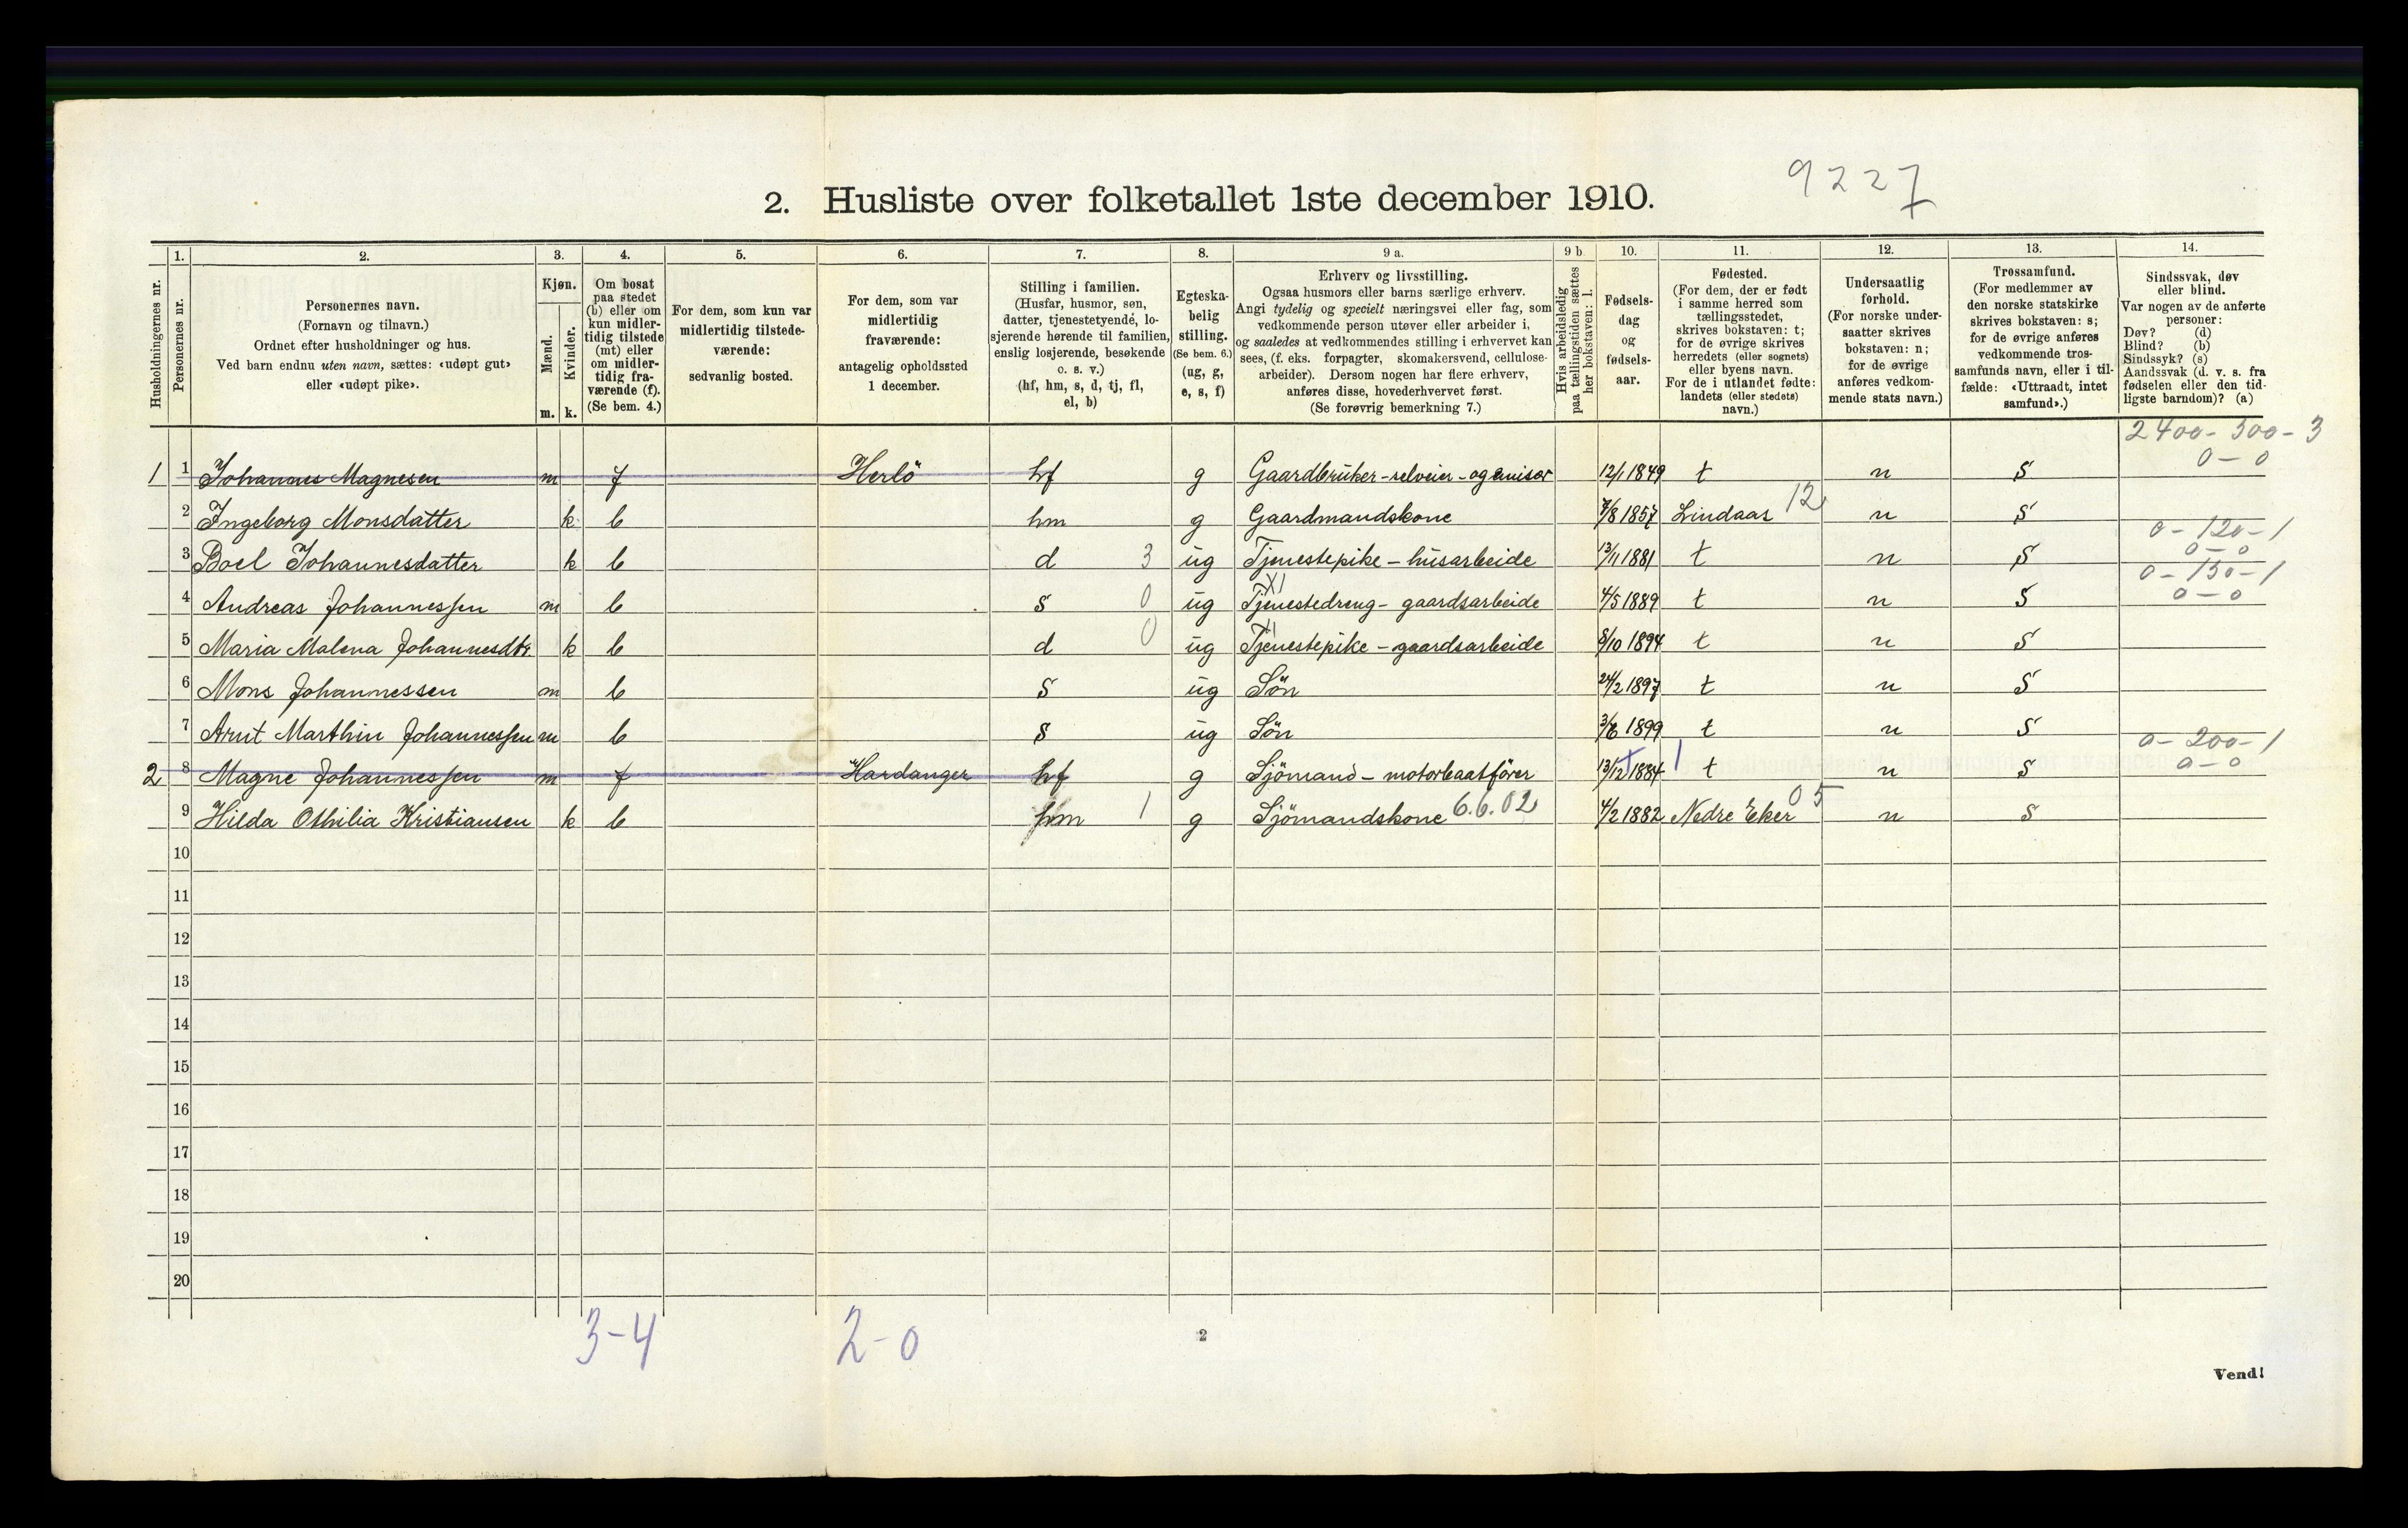 9227
2. Husliste over folketallet 1ste december 1910.
Husholdningernes nr.
1.
Personernes nr.
2.
Personernes navn.
(Fornavn og tilnavn.)
Ordnet efter husholdninger og hus.
Ved barn endnu uten navn, sættes: «udøpt gut»
eller «udøpt pike».
3.
Kjøn.
Mænd.
Kvinder.
m. k.
4.
Om bosat
paa stedet
(b) eller om
kun midler-
tidig tilstede
(mt) eller
om midler-
tidig fra-
værende (f).
(Se bem. 4.)
5.
For dem, som kun var
midlertidig tilstede-
værende:
sedvanlig bosted.
6.
For dem, som var
midlertidig
fraværende:
antagelig opholdssted
1 december.
7.
Stilling i familien.
(Husfar, husmor, søn,
datter, tjenestetyende, lo-
sjerende hørende til familien,
enslig losjerende, besøkende
o. s. v.)
(hf, hm, s, d, tj, fl,
el, b)
8.
Egteska-
belig
stilling.
(Se bem. 6.)
(ug, g,
e, s, f)
9 a.
Erhverv og livsstilling.
Ogsaa husmors eller barns særlige erhverv.
Angi tydelig og specielt næringsvei eller fag, som
vedkommende person utøver eller arbeider i,
og saaledes at vedkommendes stilling i erhvervet kan
sees, (f. eks. forpagter, skomakersvend, cellulose-
arbeider). Dersom nogen har flere erhverv,
anføres disse, hovederhvervet først.
(Se forøvrig bemerkning 7.)
9 b
Hvis arbeidsledig
paa tællingstiden sættes
her bokstaven: l.
10.
Fødsels-
dag
og
fødsels-
aar.
11.
Fødested.
(For dem, der er født
i samme herred som
tællingsstedet,
skrives bokstaven: t;
for de øvrige skrives
herredets (eller sognets)
eller byens navn.
For de i utlandet fødte:
landets (eller stedets)
navn.)
12.
Undersaatlig
forhold.
(For norske under-
saatter skrives
bokstaven: n;
for de øvrige
anføres vedkom-
mende stats navn.)
13.
Trossamfund.
(For medlemmer av
den norske statskirke
skrives bokstaven: s;
for de øvrige anføres
vedkommende tros-
samfunds navn, eller i til-
fælde: «Uttraadt, intet
samfund».)
14.
Sindssvak, døv
eller blind.
Var nogen av de anførte
personer:
Døv? (d)
Blind? (b)
Sindssyk? (s)
Aandssvak (d. v. s. fra
fødselen eller den tid-
ligste barndom)? (a)
2400-300-3
0-0
1 1 Johannes Magnesen m f Herlö hf g Gaardbruker-selveier-og 12/1 1849 t n S
2 Ingeborg Monsdatter k b hm g Gaardmandskone 7/8 1857 Lindaas 12 n S
0-120-1
0-0
3 Boel Johannesdatter k b d 3 ug Tjenestepike - husarbeide 13/11 1881 t n S
0-150-1
0-0
4 Andreas Johannessen m b s 0 ug Tjenestedreng - gaardsarbeide 4/5 1889 t n S
5 Maria Malena Johannesdtr k b d 0 ug Tjenestepike - gaardsarbeide 8/10 1894 t n S
6 Mons Johannessen m b s ug Sön 24/2 1897 t n S
7 Arnt Marthin Johannessen m b s ug Sön 3/6 1899 t n S
0-200-1
0-0
2 8 Magne Johannessen m f Hardanger hf g Sjömand - motorbaatförer 13/12 1884 t n S
9 Hilda Othilia Kristiansen k b hm 1 g Sjömandskone 6.6.02 4/2 1882 Nedre Eker 05 n S
10
11
12
13
14
15
16
17
18
19
20
3-4 2-0
2
Vend!